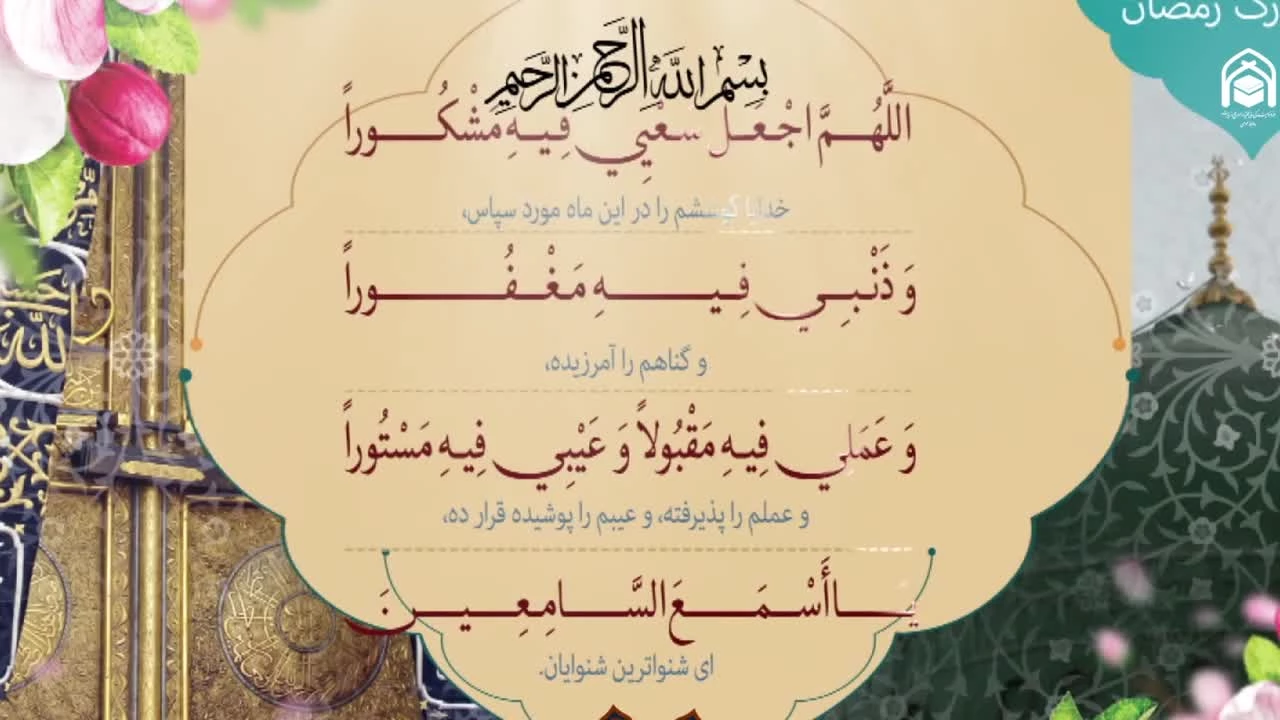 رک رمضان
بِسْمِ اللَّهِ الرَّحْمٰنِ الرَّحِيمِ
اللَّهُمَّ اجْعَلْ سَعْيِي فِيهِ مَشْكُوراً
خدایا کوششم را در این ماه مورد سپاس،
وَ ذَنْبِي فِيهِ مَغْفُوراً
و گناهم را آمرزیده،
وَ عَمَلِي فِيهِ مَقْبُولاً وَ عَيْبِي فِيهِ مَسْتُوراً
و عملم را پذیرفته، و عیبم را پوشیده قرار ده،
يَا أَسْمَعَ السَّامِعِينَ
ای شنواترین شنوایان.